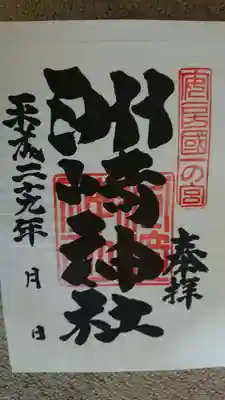 安房國一の宮
奉拝
洲崎神社
平成二十九年
月 日